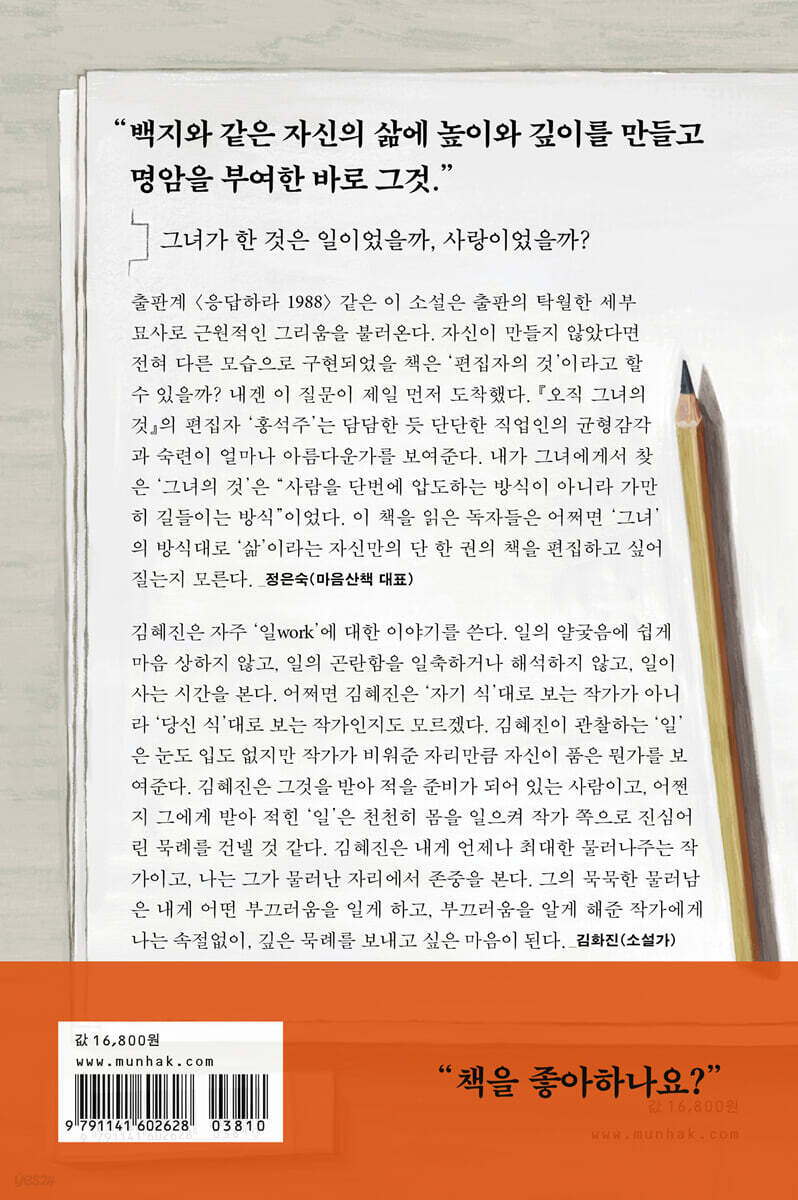 “백지와 같은 자신의 삶에 높이와 깊이를 만들고
명암을 부여한 바로 그것.”
그녀가 한 것은 일이었을까, 사랑이었을까?
출판계 〈응답하라 1988〉 같은 이 소설은 출판의 탁월한 세부
묘사로 근원적인 그리움을 불러온다. 자신이 만들지 않았다면
전혀 다른 모습으로 구현되었을 책은 ‘편집자의 것’이라고 할
수 있을까? 내겐 이 질문이 제일 먼저 도착했다. 『오직 그녀의
것』의 편집자 ‘홍석주’는 담담한 듯 단단한 직업인의 균형감각
과 숙련이 얼마나 아름다운가를 보여준다. 내가 그녀에게서 찾
은 ‘그녀의 것’은 “사람을 단번에 압도하는 방식이 아니라 가만
히 길들이는 방식”이었다. 이 책을 읽은 독자들은 어쩌면 ‘그녀’
의 방식대로 ‘삶’이라는 자신만의 단 한 권의 책을 편집하고 싶어
질는지 모른다. _정은숙(마음산책 대표)
김혜진은 자주 ‘일work’에 대한 이야기를 쓴다. 일의 얄궂음에 쉽게
마음 상하지 않고, 일의 곤란함을 일축하거나 해석하지 않고, 일이
사는 시간을 본다. 어쩌면 김혜진은 ‘자기 식’대로 보는 작가가 아니
라 ‘당신 식’대로 보는 작가인지도 모르겠다. 김혜진이 관찰하는 ‘일’
은 눈도 입도 없지만 작가가 비워준 자리만큼 자신이 품은 뭔가를 보
여준다. 김혜진은 그것을 받아 적을 준비가 되어 있는 사람이고, 어쩐
지 그에게 받아 적힌 ‘일’은 천천히 몸을 일으켜 작가 쪽으로 진심어
린 묵례를 건넬 것 같다. 김혜진은 내게 언제나 최대한 물러나주는 작
가이고, 나는 그가 물러난 자리에서 존중을 본다. 그의 묵묵한 물러남
은 내게 어떤 부끄러움을 일게 하고, 부끄러움을 알게 해준 작가에게
나는 속절없이, 깊은 묵례를 보내고 싶은 마음이 된다. _김화진(소설가)
값 16,800원
www.munhak.com
9 791141 602628 03810
9 791141 602628 03810
“책을 좋아하나요?”
값 16,800원
www.munhak.com
yes24